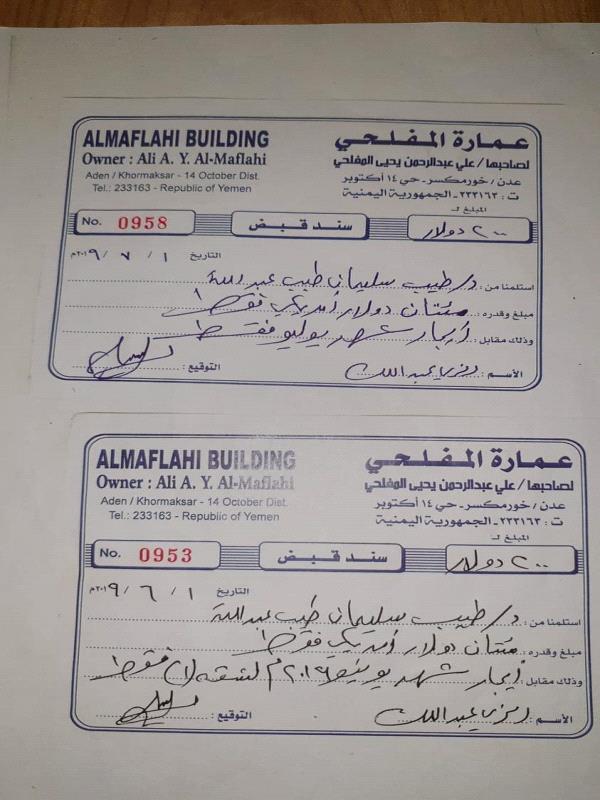 ALMAFLAHI BUILDING
عمارة المفلحي
Owner : Ali A. Y. Al-Maflahi
لصاحبها / علي عبدالرحمن يحيى المفلحي
Aden / Khormaksar - 14 October Dist.
عدن / خورمكسر - حي ١٤ أكتوبر
Tel.: 233163 - Republic of Yemen
ت : ٢٣٣١٦٣ - الجمهورية اليمنية
المبلغ لـ
No. 0958
سند قبض
٢٠٠ دولار
التاريخ ١ / ٧ / ٢٠١٩م
استلمنا من : د/ طيب سليمان طيب عبدالله
مبلغ وقدره : مئتان دولار أمريكي فقط
وذلك مقابل : أيجار شهر يوليو فقط
الأسم : رمزي عبدالملك
التوقيع :
ALMAFLAHI BUILDING
عمارة المفلحي
Owner : Ali A. Y. Al-Maflahi
لصاحبها / علي عبدالرحمن يحيى المفلحي
Aden / Khormaksar - 14 October Dist.
عدن / خورمكسر - حي ١٤ أكتوبر
Tel.: 233163 - Republic of Yemen
ت : ٢٣٣١٦٣ - الجمهورية اليمنية
المبلغ لـ
No. 0953
سند قبض
٢٠٠ دولار
التاريخ ١ / ٦ / ٢٠١٩م
استلمنا من : د/ طيب سليمان طيب عبدالله
مبلغ وقدره : مئتان دولار أمريكي فقط
وذلك مقابل : أيجار شهر يونيو ٢٠١٩م لشقه (١) فقط
الأسم : رمزي عبدالملك
التوقيع :